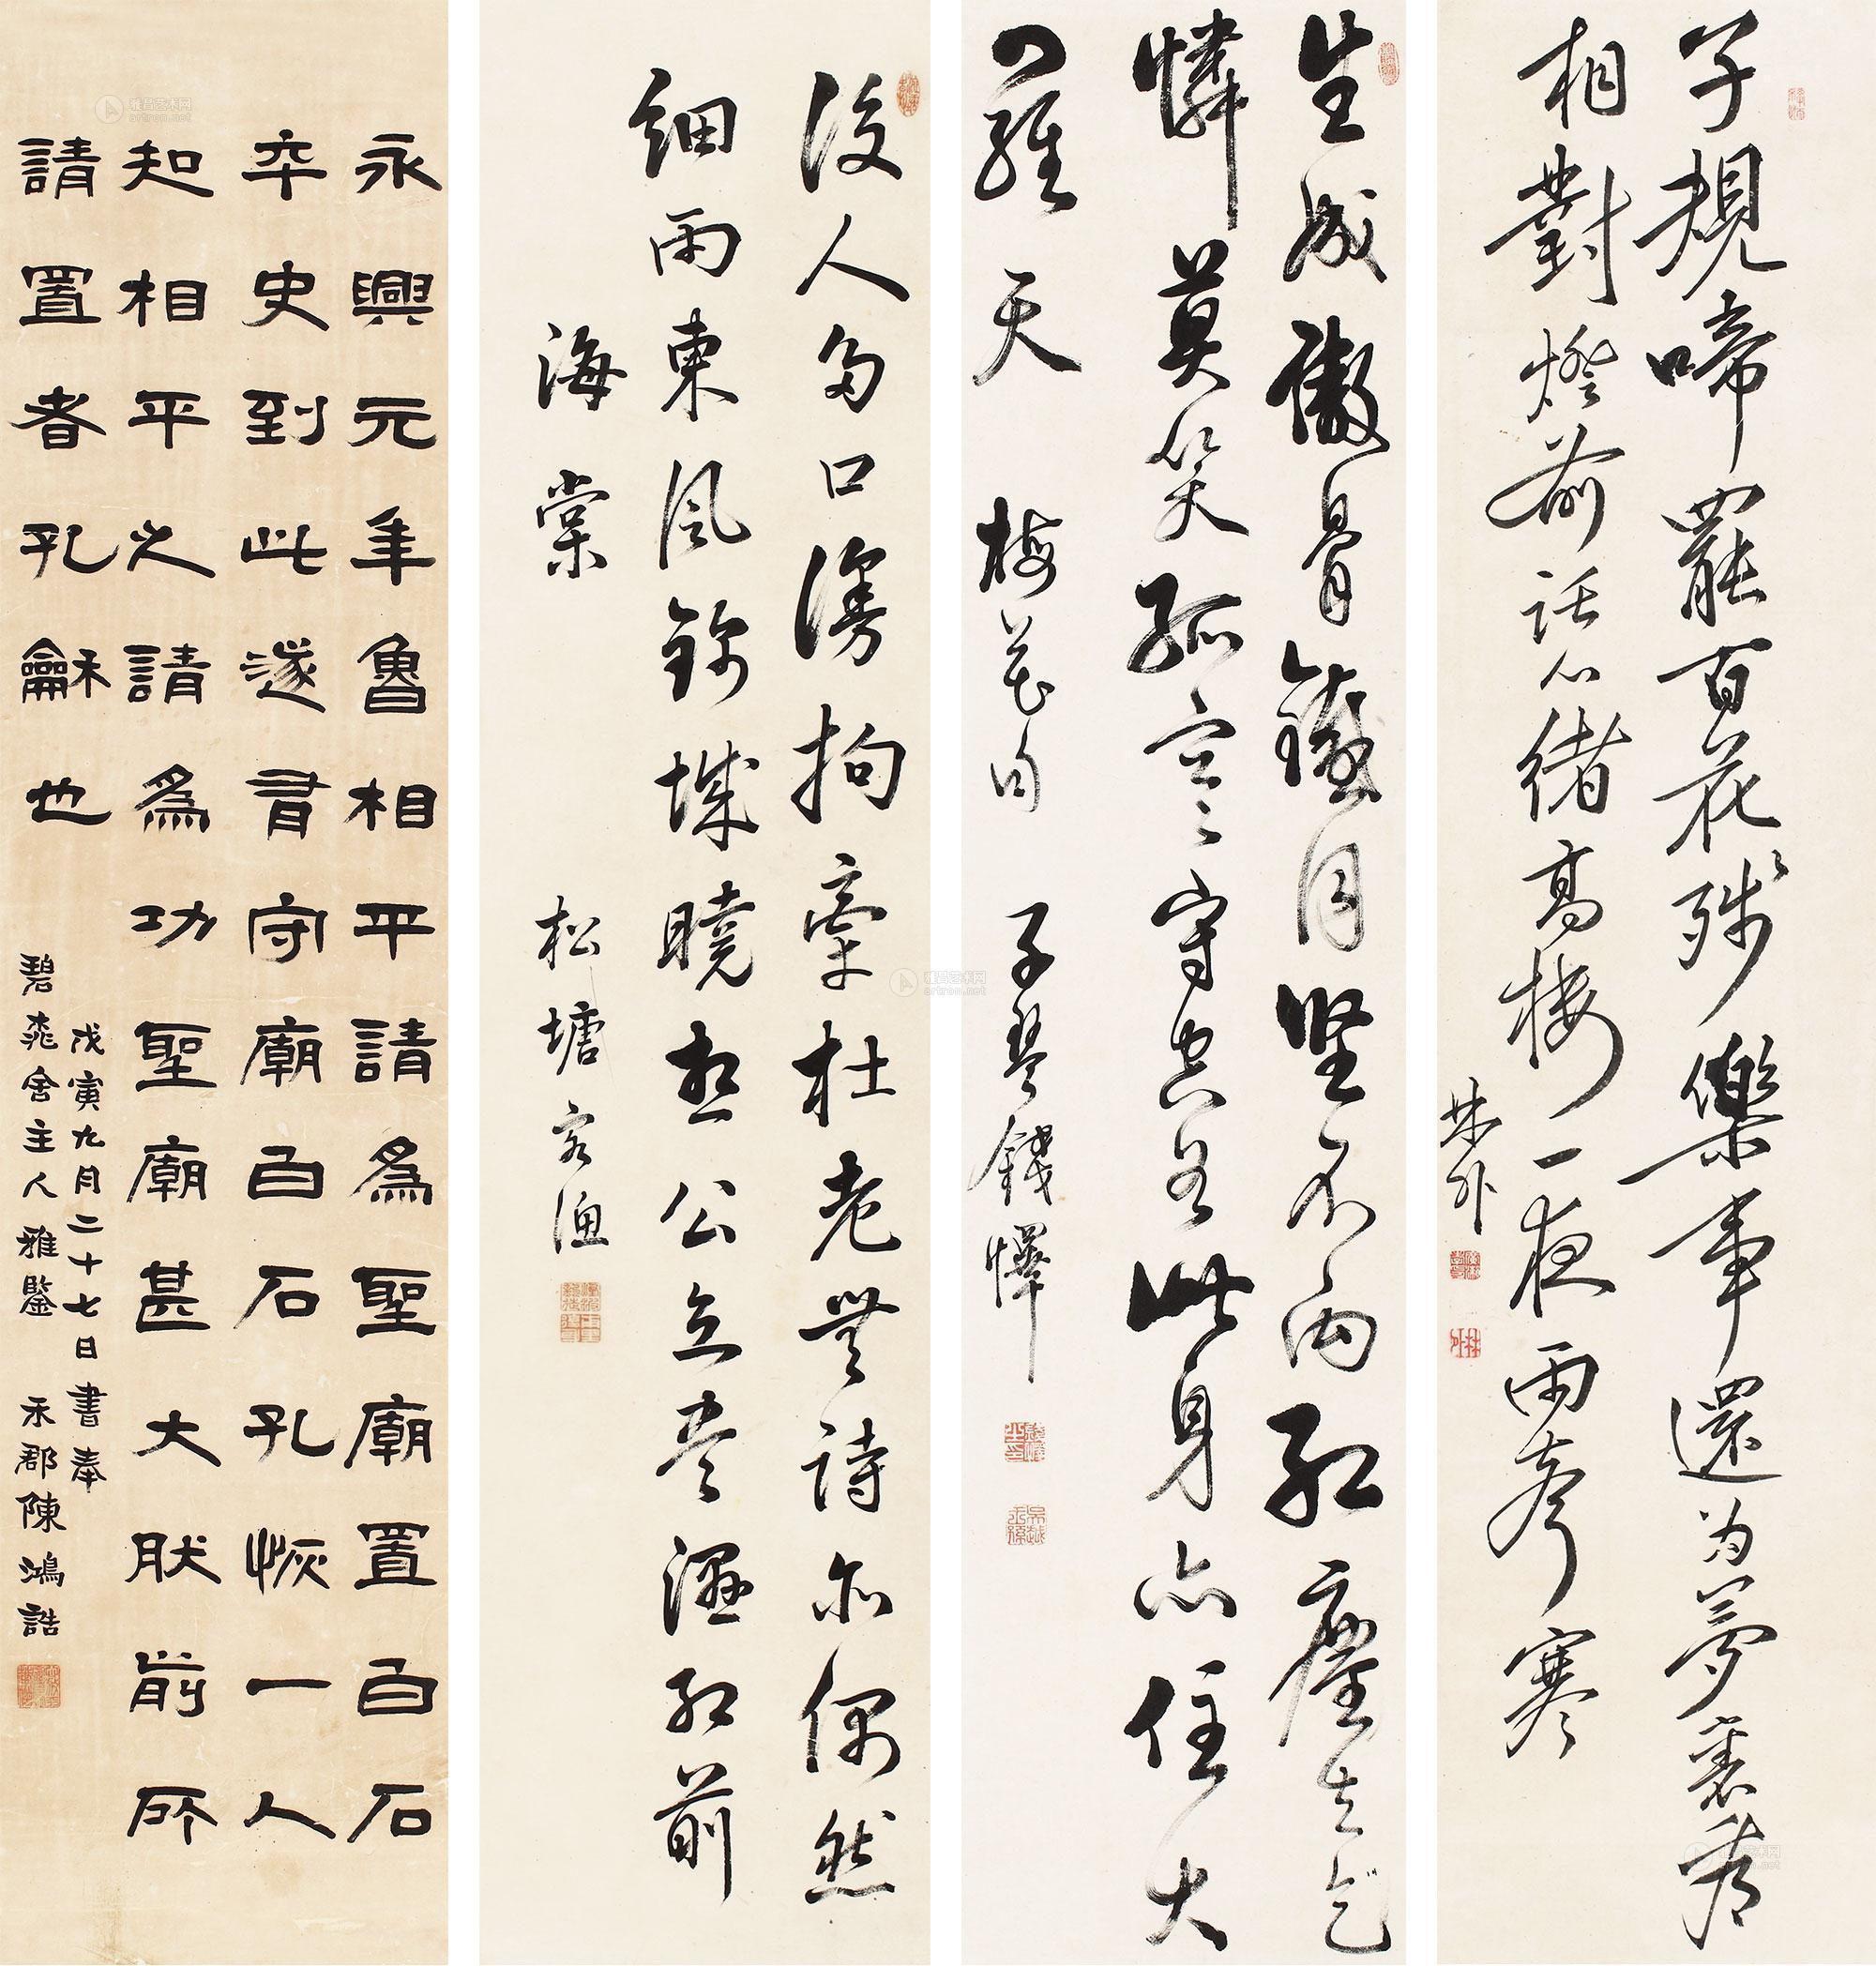 子規啼罷百花殘樂事還为夢裏看
相對燈前話心緒高樓一夜雨聲寒
林外
生成傲骨鐵同坚不向紅塵去乞
憐莫笑孤寒守空谷此身亦住大
羅天 梅花句 子琴錢懌
後人多口漫拘牽杜老無詩亦偶然
細雨東風錦城曉想公立盡濕紅前
海棠 松塘客漁
永興元年魯相平請為聖廟置百石
卒史到此遂君守廟百石孔恢一人
知相平之請為功聖廟甚大肰前所
請置者孔龢也
戊寅九月二十七日書奉
碧桃舍主人雅鑒 禾郡陳鴻誥
雅昌艺术网
artron.net